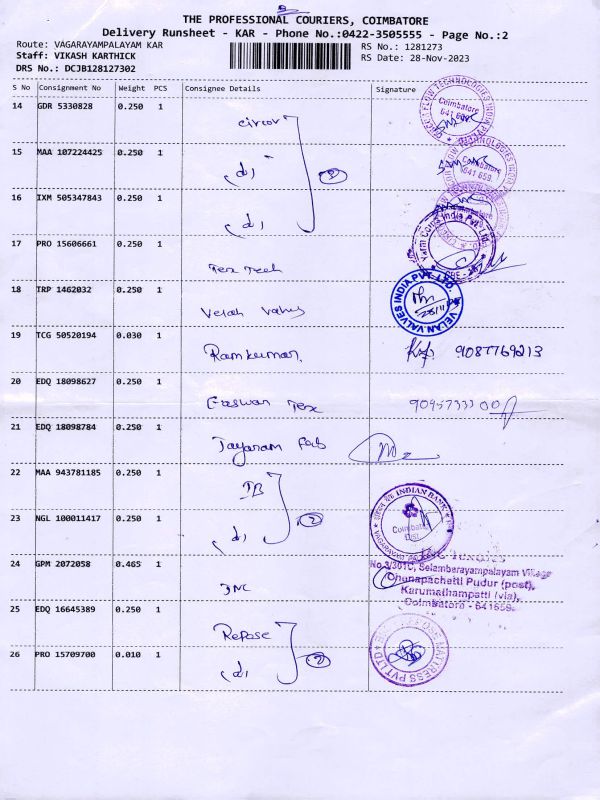 THE PROFESSIONAL COURIERS, COIMBATORE
Delivery Runsheet - KAR - Phone No.:0422-3505555 - Page No.:2
Route: VAGARAYAMPALAYAM KAR
RS No.: 1281273
Staff: VIKASH KARTHICK
RS Date: 28-Nov-2023
DRS No.: DCJB128127302
S No Consignment No Weight PCS Consignee Details Signature
14 GDR 5330828 0.250 1
15 MAA 107224425 0.250 1
16 IXM 505347843 0.250 1
17 PRO 15606661 0.250 1 Tex Tech
18 TRP 1462032 0.250 1 Velan Valves
VELAN VALVES INDIA PVT. LTD.
19 TCG 50520194 0.030 1 Ramkumar. 9087769213
20 EDQ 18098627 0.250 1 Easwari Tex
21 EDQ 18098784 0.250 1 Jayaram Fab
22 MAA 943781185 0.250 1 IB
INDIAN BANK
23 NGL 100011417 0.250 1
24 GPM 2072058 0.465 1 JNC
No.3/301C, Selambarayampalayam Village
Chunapachetti Pudur (post),
Karumathampatti (via),
Coimbatore - 641659.
25 EDQ 16645389 0.250 1 Repose
26 PRO 15709700 0.010 1
MATTRESS PVT LTD